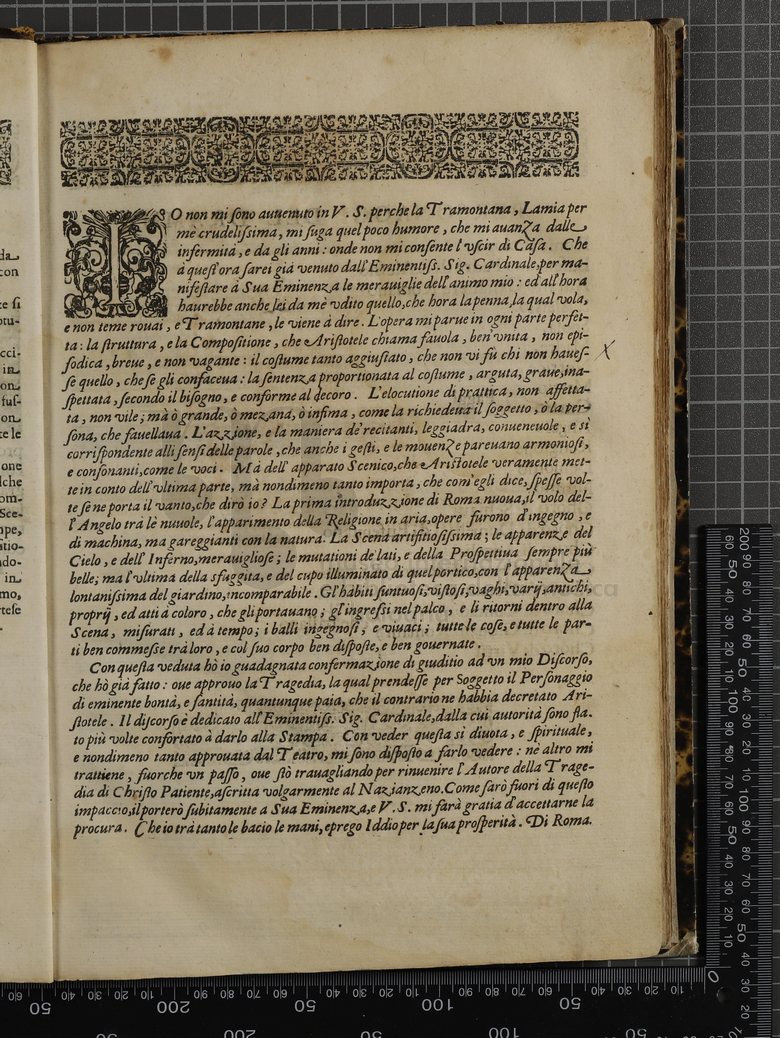 IO non mi sono auuenuto in V. S. perche la Tramontana, Lamia per
me crudelissima, mi fuga quel poco humore, che mi auanza dalle
infermità, e da gli anni: onde non mi consente l'vscir di Casa. Che
à quest'ora sarei già venuto dall'Eminentiss. Sig. Cardinale, per ma-
nifestare à Sua Eminenza le merauiglie dell'animo mio: ed all'hora
haurebbe anche lei da me vdito quello, che hora la penna, la qual vola,
e non teme rouai, e Tramontane, le viene à dire. L'opera mi parue in ogni parte perfet-
ta: la struttura, e la Compositione, che Aristotele chiama fauola, ben vnita, non epi-
sodica, breue, e non vagante: il costume tanto aggiustato, che non vi fù chi non hauess-
se quello, che se gli confaceua: la sentenza proportionata al costume, arguta, graue, ina-
spettata, secondo il bisogno, e conforme al decoro. L'elocutione di prattica, non affetta-
ta, non vile; mà ò grande, ò mezana, ò infima, come la richiedeua il soggetto, ò la per-
sona, che fauellaua. L'azzione, e la maniera de' recitanti, leggiadra, conueneuole, e sì
corrispondente alli sensi delle parole, che anche i gesti, e le mouenze pareuano armoniosi,
e consonanti, come le voci. Mà dell'apparato Scenico, che Aristotele veramente met-
te in conto dell'vltima parte, mà nondimeno tanto importa, che com'egli dice, spesse vol-
te se ne porta il vanto, che dirò io? La prima introduzzione di Roma nuoua, il volo del-
l'Angelo trà le nuuole, l'apparimento della Religione in aria, opere furono d'ingegno, e
di machina, ma gareggianti con la natura. La Scena artifitiosissima; le apparenze del
Cielo, e dell'Inferno, merauigliose; le mutationi de lati, e della Prospettiua sempre più
belle; ma l'vltima della sfuggita, e del cupo illuminato di quel portico, con l'apparenza
lontanissima del giardino, incomparabile. Gl'habiti suntuosi, vistosi, vaghi, varij, antichi,
proprij, ed atti à coloro, che gli portauano; gl'ingressi nel palco, e li ritorni dentro alla
Scena, misurati, ed à tempo; i balli ingegnosi, e viuaci; tutte le cose, e tutte le par-
ti ben commesse trà loro, e col suo corpo ben disposte, e ben gouernate.
Con questa veduta hò io guadagnata confermazione di giuditio ad vn mio Discorso,
che hò già fatto: oue approuo la Tragedia, la qual prendesse per Soggetto il Personaggio
di eminente bontà, e santità, quantunque paia, che il contrario ne habbia decretato Ari-
stotele. Il discorso è dedicato all'Eminentiss. Sig. Cardinale, dalla cui autorità sono sta-
to più volte confortato à darlo alla Stampa. Con veder questa sì diuota, e spirituale,
e nondimeno tanto approuata dal Teatro, mi sono disposto a farlo vedere: nè altro mi
trattiene, fuorche vn passo, oue stò trauagliando per rinuenire l'Autore della Trage-
dia di Christo Patiente, ascritta volgarmente al Nazianzeno. Come sarò fuori di questo
impaccio, il porterò subitamente a Sua Eminenza, e V. S. mi farà gratia d'accettarne la
procura. Che io trà tanto le bacio le mani, e prego Iddio per la sua prosperità. Di Roma.